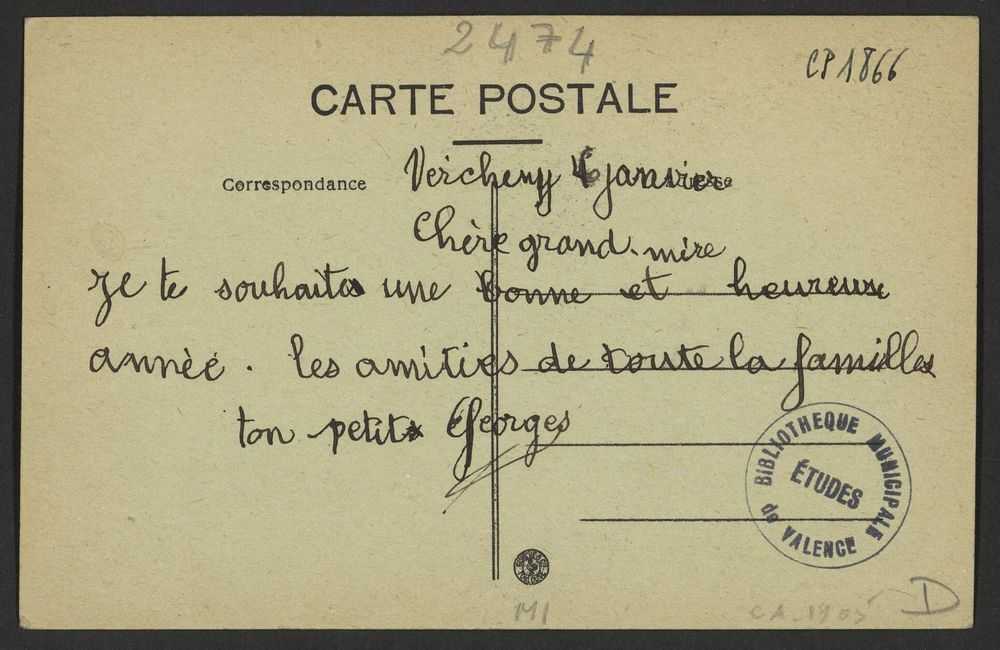 2474
CP 1866
CARTE POSTALE
Correspondance
Adresse
Vercheny janvier
Chère grand-mère
Je te souhaite une bonne et heureuse
année. les amitiés de toute la famille
ton petit Georges
BIBLIOTHEQUE MUNICIPALE
ÉTUDES
de VALENCE
D